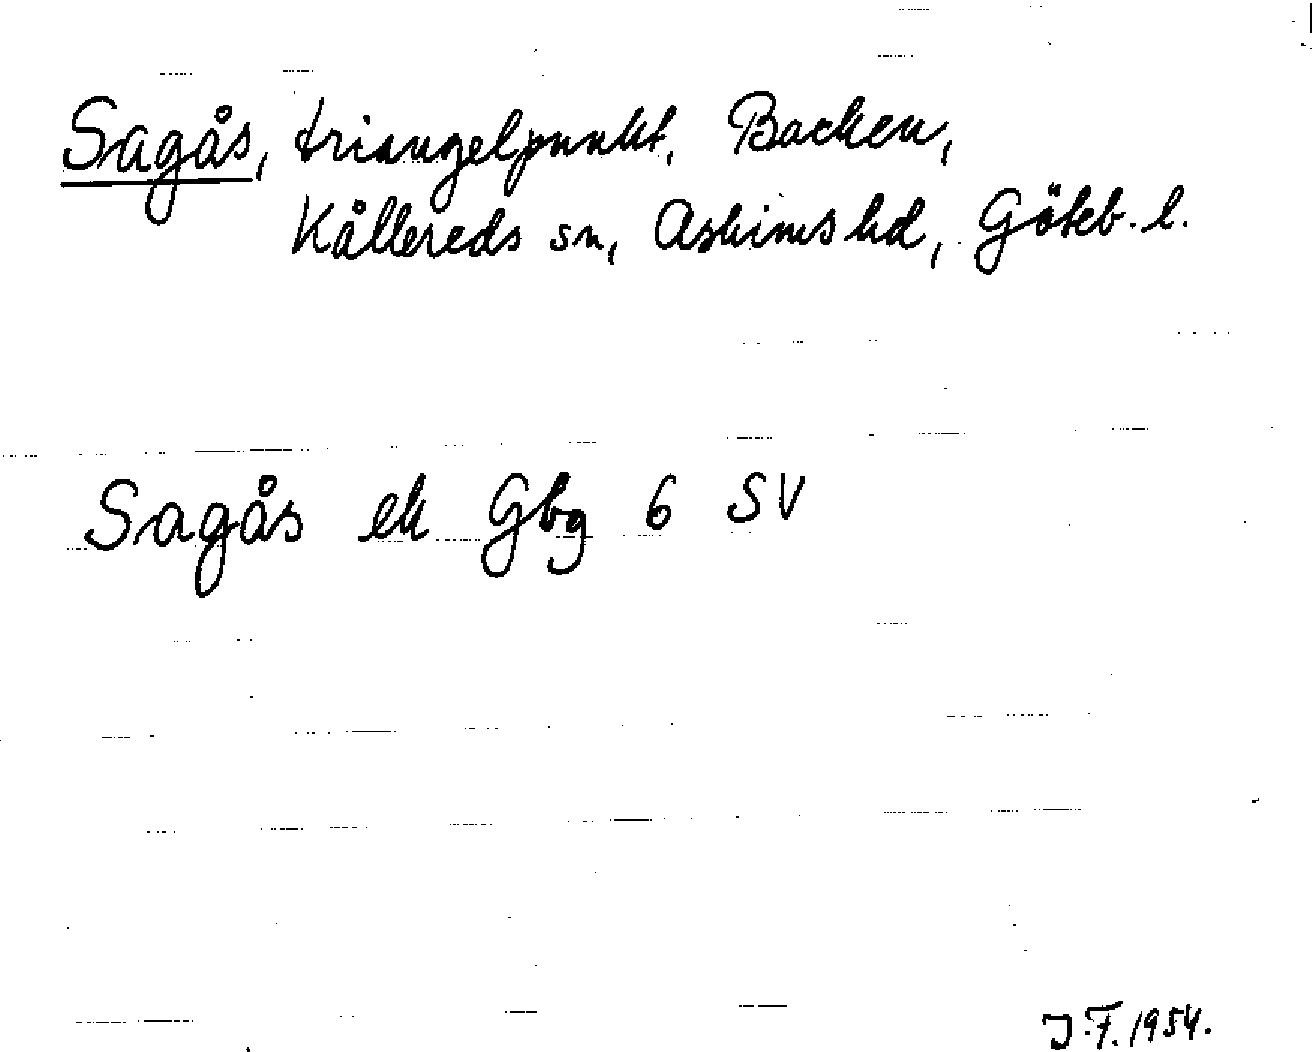 Sagås, triangelpunkt, Backen,
Kållereds sn, Askims hd, Göteb. l.
Sagås ek Gbg 6 SV
J.F. 1954.